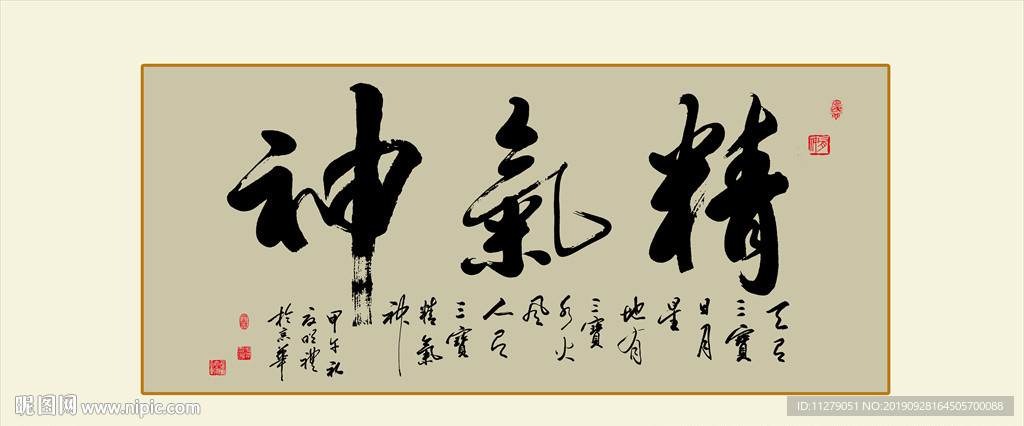 精氣神
天有
三寶
日月
星
地有
三寶
水火
風
人有
三寶
精氣
神
甲午
於京華
昵图网 www.nipic.com
ID:11279051 NO:20190928164505700088